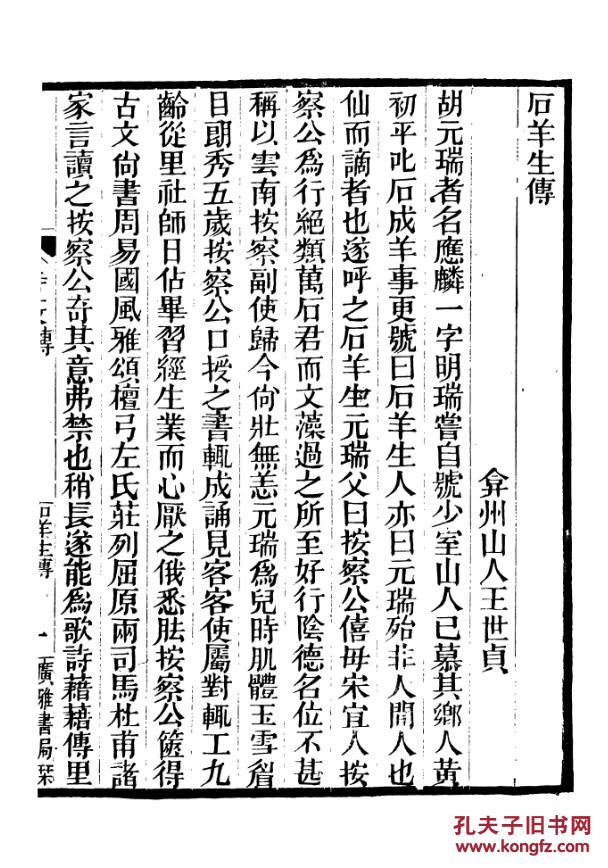 石羊生傳
弇州山人王世貞
胡元瑞者名應麟一字明瑞嘗自號少室山人已慕其鄉人黃
初平叱石成羊事更號曰石羊生人亦曰元瑞殆非人間人也
仙而謫者也遂呼之石羊生元瑞父曰按察公僖毋宋宜人按
察公爲行絕類萬石君而文藻過之所至好行陰德名位不甚
稱以雲南按察副使歸今尙壯無恙元瑞爲兒時肌體玉雪眉
目朗秀五歲按察公口授之書輒成誦見客客使屬對輒工九
齡從里社師日佔畢習經生業而心厭之俄悉胠按察公篋得
古文尙書周易國風雅頌檀弓左氏莊列屈原兩司馬杜甫諸
家言讀之按察公奇其意弗禁也稍長遂能爲歌詩藉藉傳里
石羊生傳
一
廣雅書局栞
孔夫子旧书网
www.kongfz.com